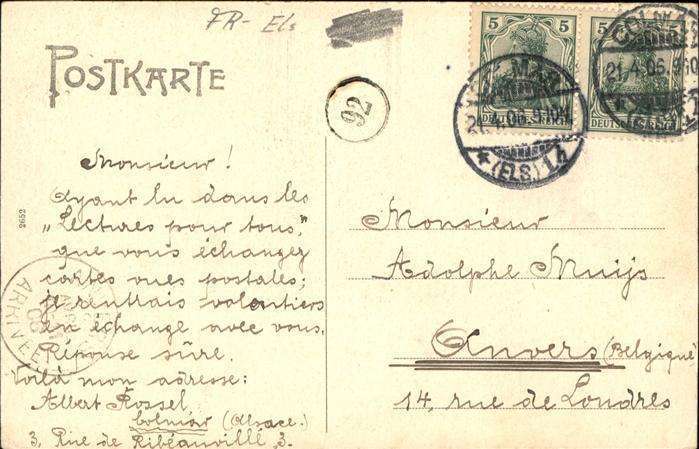 FR- Els
POSTKARTE
92
5 5
5
DEUTSCHES REICH
DEUTSCHES REICH
COLMAR
21.4.06.
(ELS) 1
21.4.06.
2652
Monsieur!
Ayant lu dans les
„Lectures pour tous,"
que vous échangez
cartes vues postales;
je rentrais volontiers
en échange avec vous.
Réponse sûre.
Voilà mon adresse:
Albert Rossel,
Colmar (Alsace.)
3, Rue de Ribeauvillé, 3.
Monsieur
Adolphe Muijs
Anvers (Belgique)
14, rue de Londres